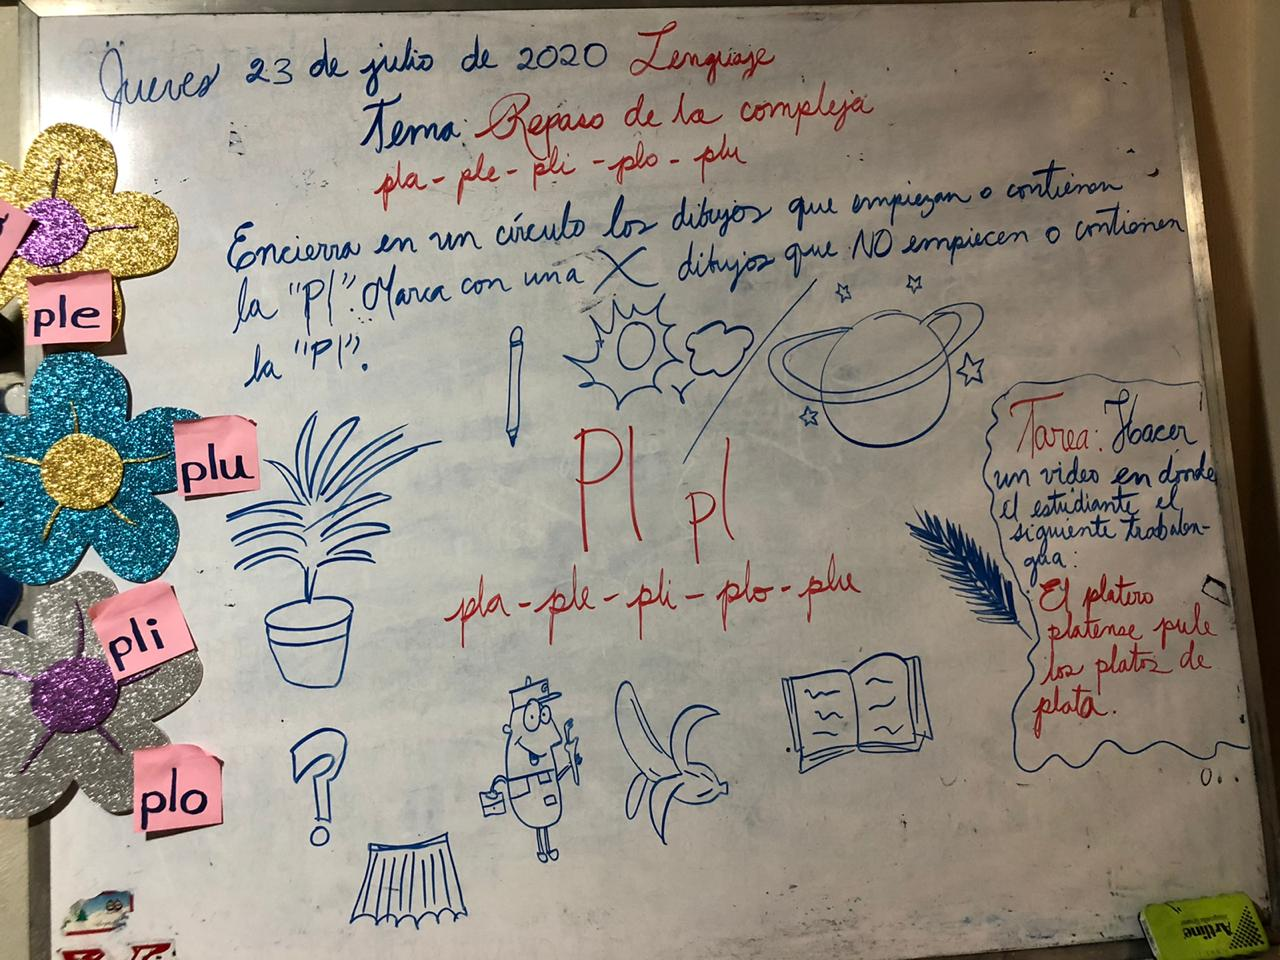 Jueves 23 de julio de 2020 Lenguaje
Tema: Repaso de la compleja
pla - ple - pli - plo - plu
Encierra en un círculo los dibujos que empiezan o contienen
la "Pl". Marca con una X dibujos que NO empiecen o contienen
la "Pl".
ple
plu
pli
plo
Pl pl
pla - ple - pli - plo - plu
Tarea: Hacer
un video en donde
el estudiante el
siguiente trabalen-
gua:
El platero
platense pule
los platos de
plata.
Artline